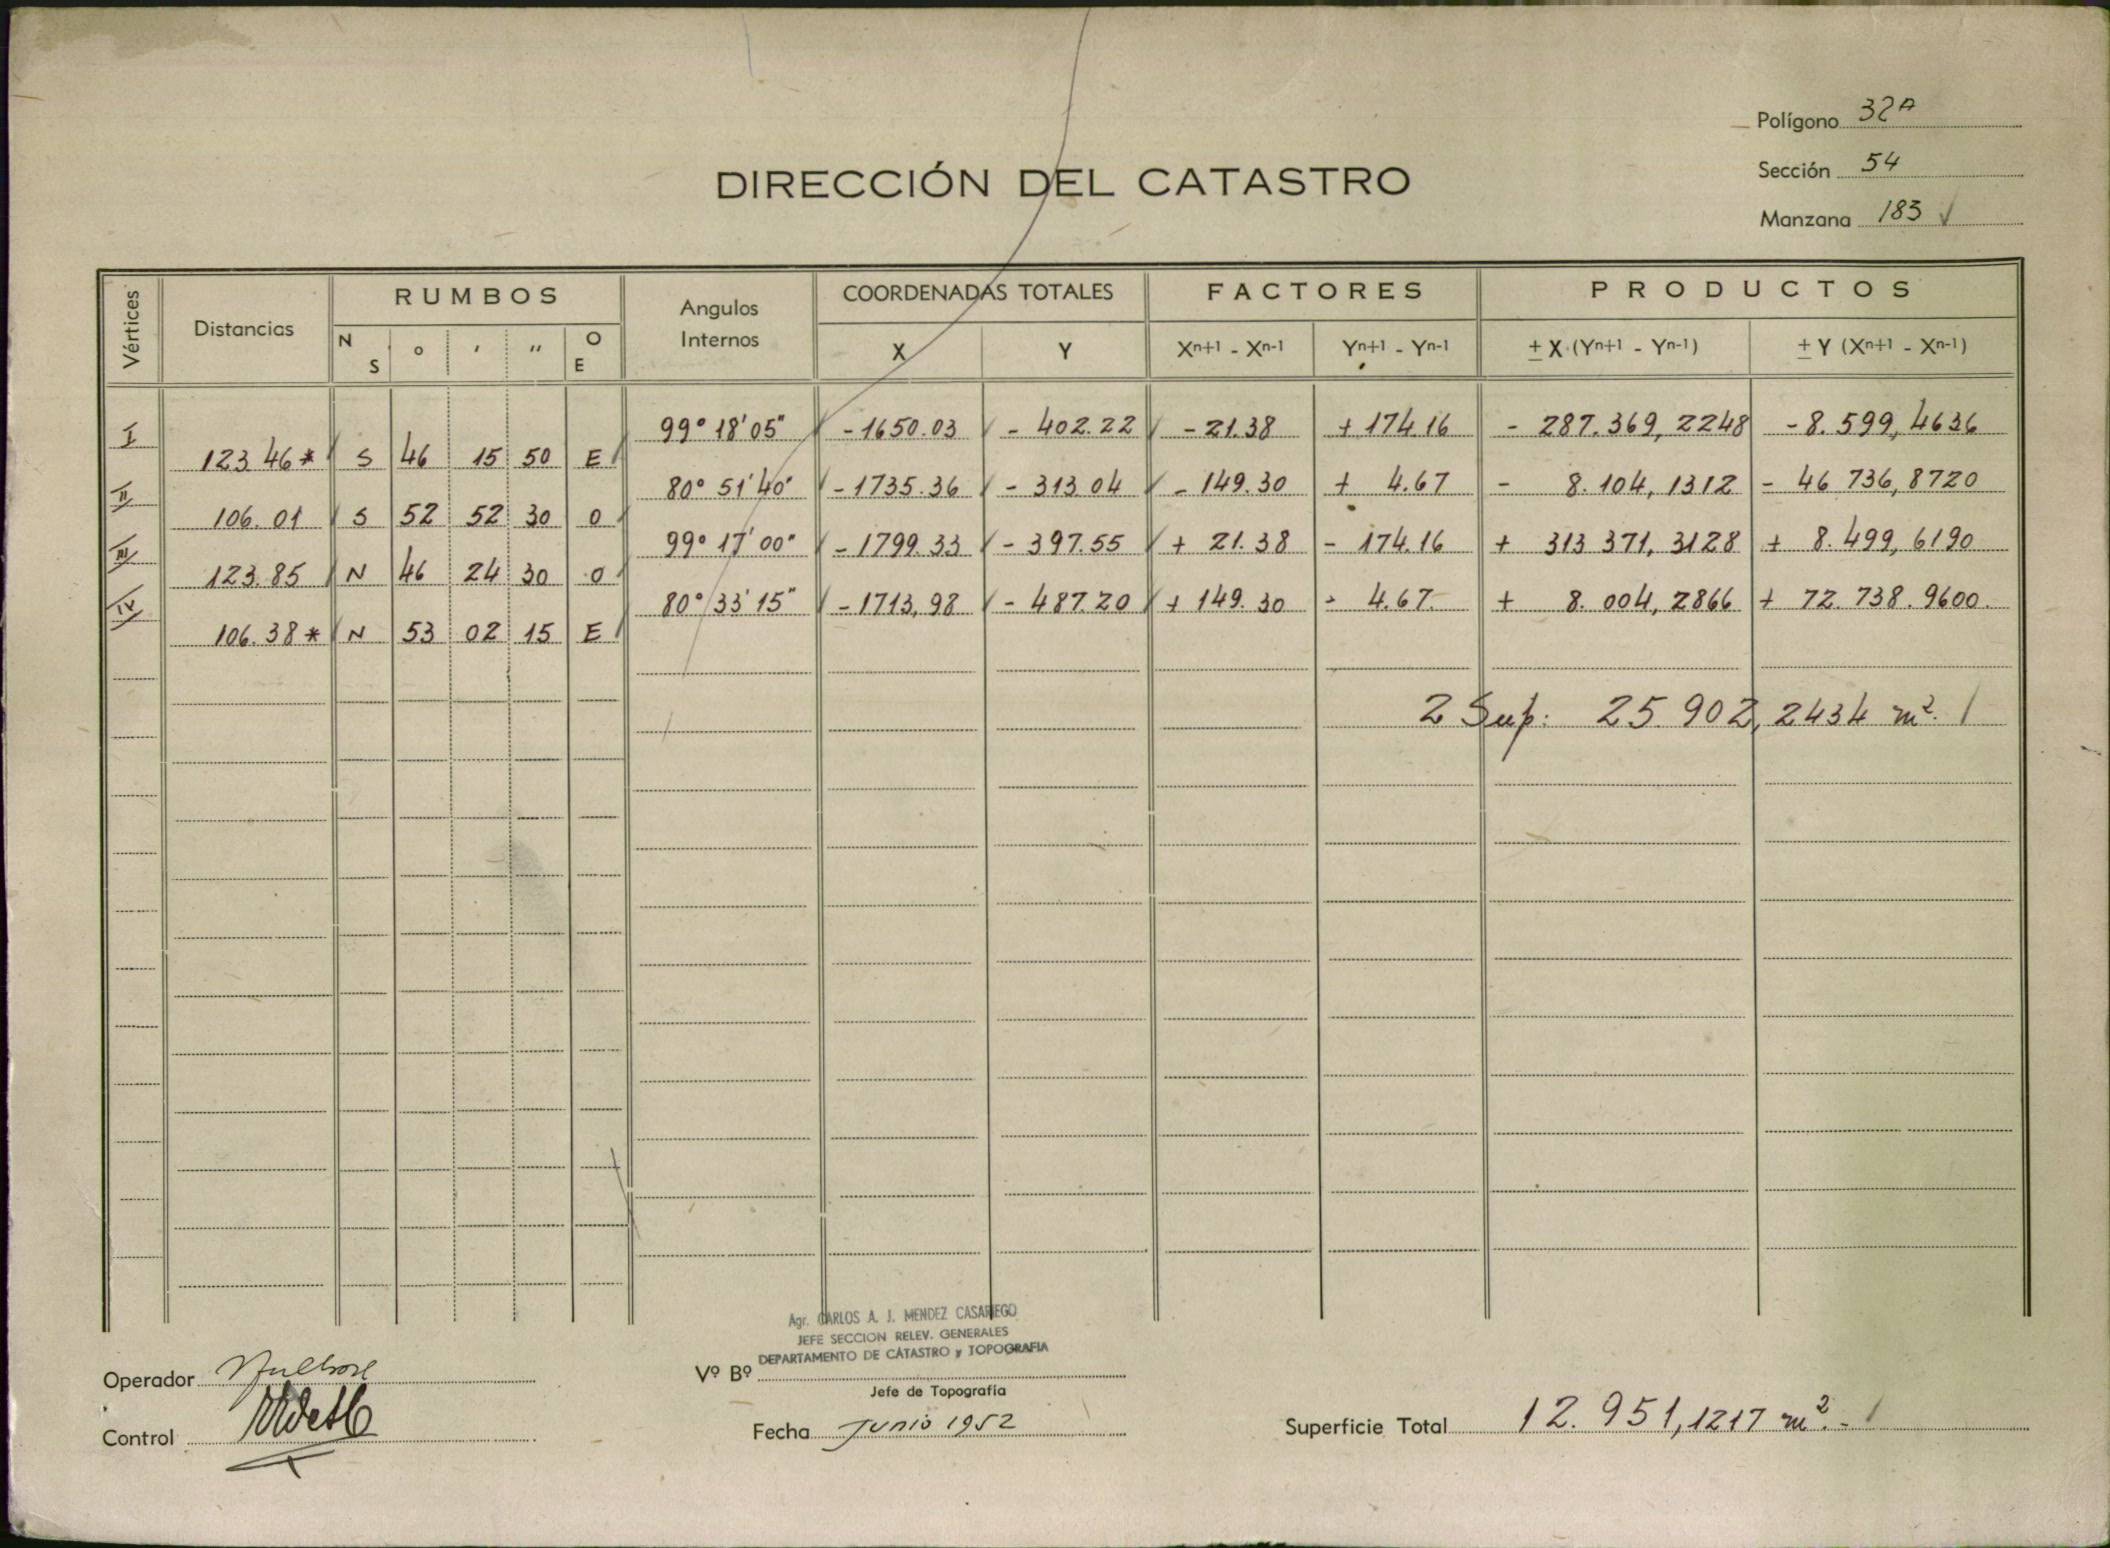 Polígono 32A
DIRECCIÓN DEL CATASTRO
Sección 54
Manzana 183 ✓
Vértices Distancias RUMBOS Angulos Internos COORDENADAS TOTALES FACTORES PRODUCTOS
N S ° ' " O E X Y Xn+1 - Xn-1 Yn+1 - Yn-1 ± X (Yn+1 - Yn-1) ± Y (Xn+1 - Xn-1)
I 99° 18' 05" -1650.03 - 402.22 - 21.38 + 174.16 - 287.369,2248 - 8.599,4636
123.46* S 46 15 50 E
II 80° 51' 40" - 1735.36 - 313.04 - 149.30 + 4.67 - 8.104,1312 - 46 736,8720
106.01 S 52 52 30 O
III 99° 17' 00" - 1799.33 - 397.55 + 21.38 - 174.16 + 313 371,3128 + 8.499,6190
123.85 N 46 24 30 O
IV 80° 33' 15" - 1713,98 - 487.20 + 149.30 - 4.67 + 8.004,2866 + 72.738.9600
106.38* N 53 02 15 E
2 Sup: 25 902,2434 m².
Agr. CARLOS A. J. MENDEZ CASARIEGO
JEFE SECCION RELEV. GENERALES
DEPARTAMENTO DE CATASTRO y TOPOGRAFIA
Operador
Vº Bº
Jefe de Topografía
Control
Fecha Junio 1952
Superficie Total 12.951,1217 m².-